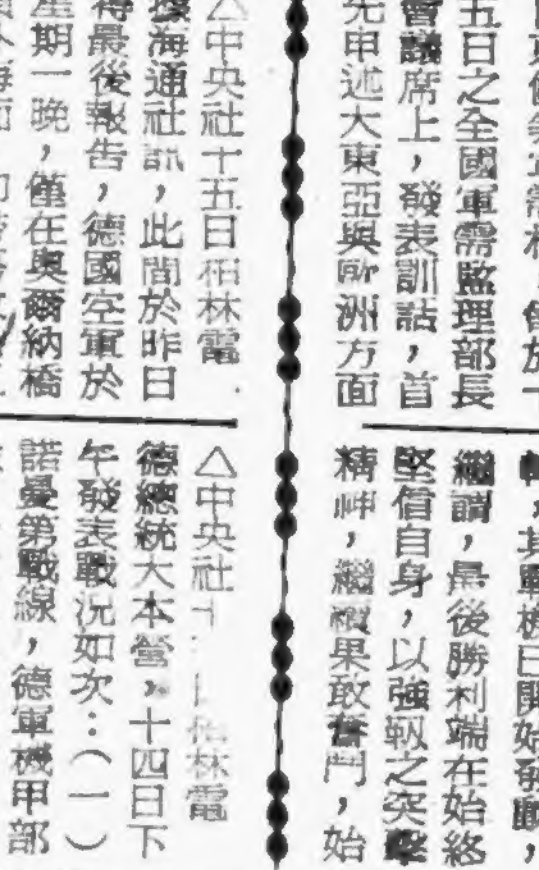 五日之全國軍需監理部長
會議席上，發表訓話，首
先申述大東亞與歐洲方面
，其戰機已開始發動，
繼謂，最後勝利端在始終
堅信自身，以強靱之突擊
精神，繼續果敢奮鬥，始
△中央社十五日柏林電
據海通社訊，此間於昨日
得最後報告，德國空軍於
星期一晚，僅在奧爾納橋
△中央社十 柏林電
德總統大本營，十四日下
午發表戰況如次：（一）
諾曼第戰線，德軍機甲部